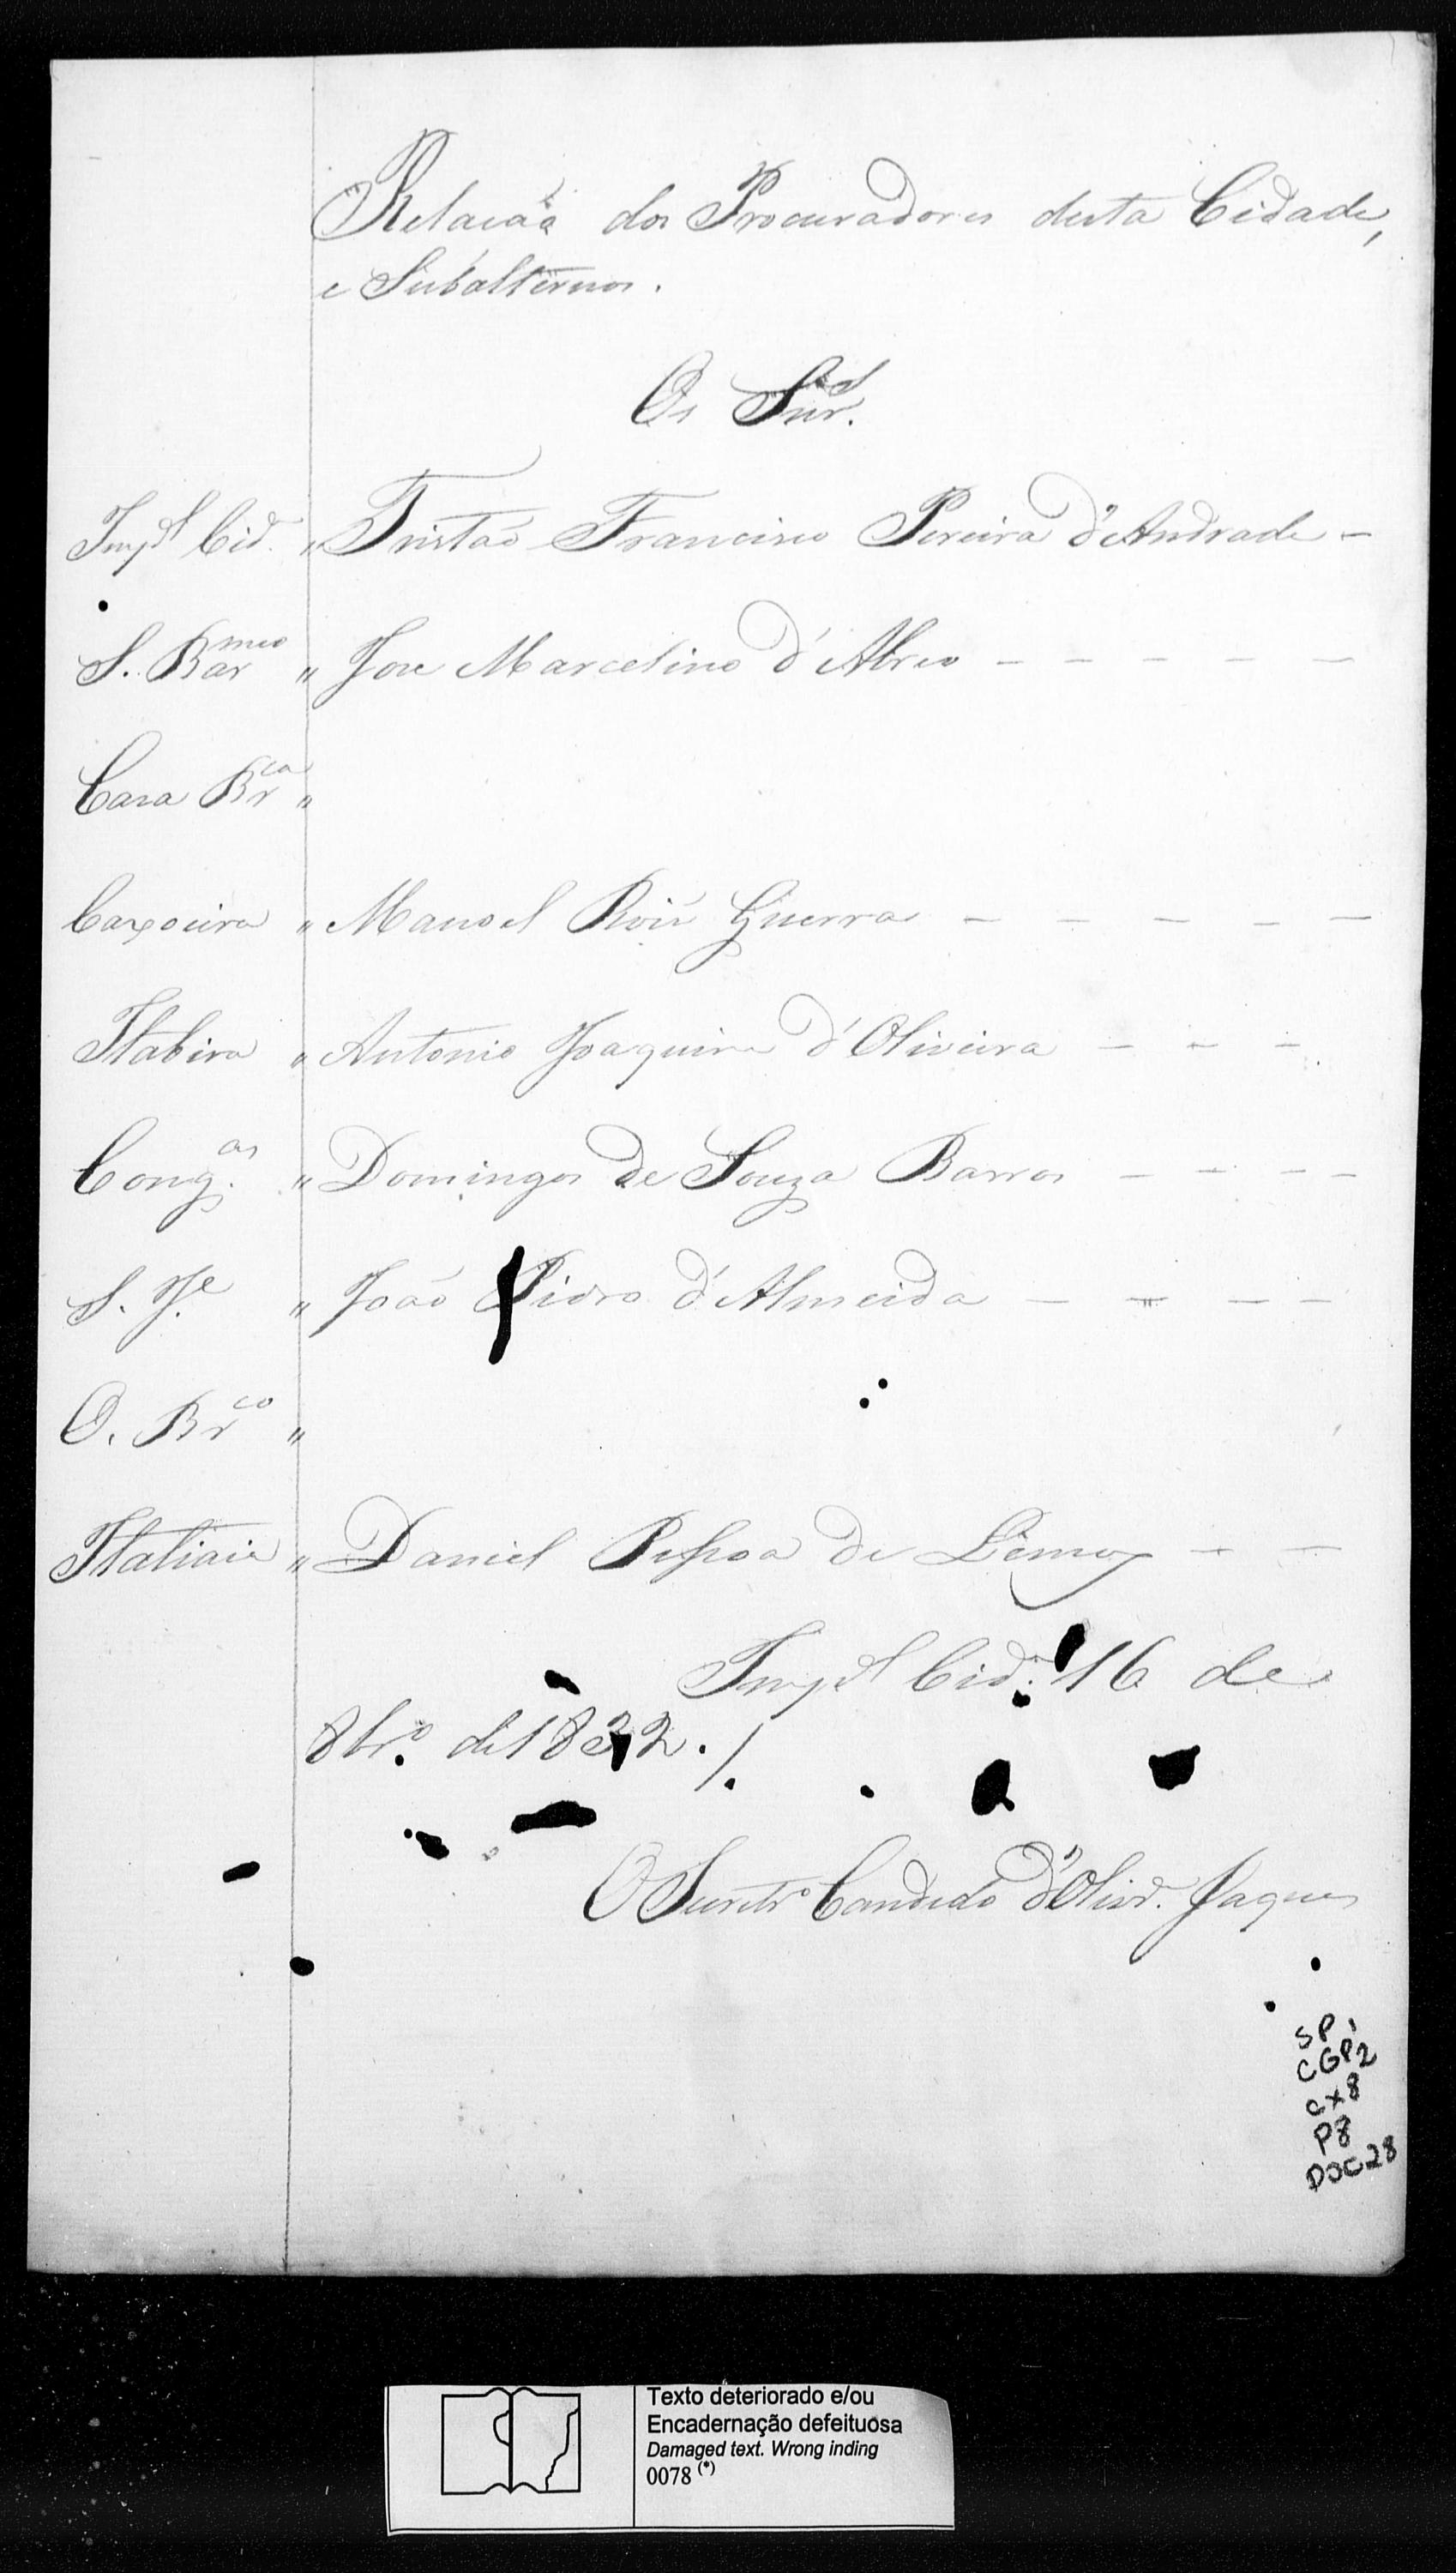 Relação dos Procuradores desta Cidade,
e Subalternos.
Os Snr.es
Imp.al Cid. " Tristaõ Francisco Pereira d'Andrade -
S. Bar meo " Jose Marcelino d'Abreo - - - - -
Caza Br ca "
Caxoeira " Manoel Roiz Guerra - - - - -
Itabira " Antonio Joaquim d'Oliveira - - -
Cong.as " Domingos de Souza Barros - - - -
S. Je. " João Pedro d'Almeida - - - -
O. Br co "
Itatiaia " Daniel Pessoa de Lemos - -
Imp.al Cid.e 16 de
8br.o de 1832. /.
O Secretr.o Candido d'Olivr.a Jaques
SP1
CGP2
CX8
P8
DOC28
Texto deteriorado e/ou
Encadernação defeituosa
Damaged text. Wrong inding
0078 (*)